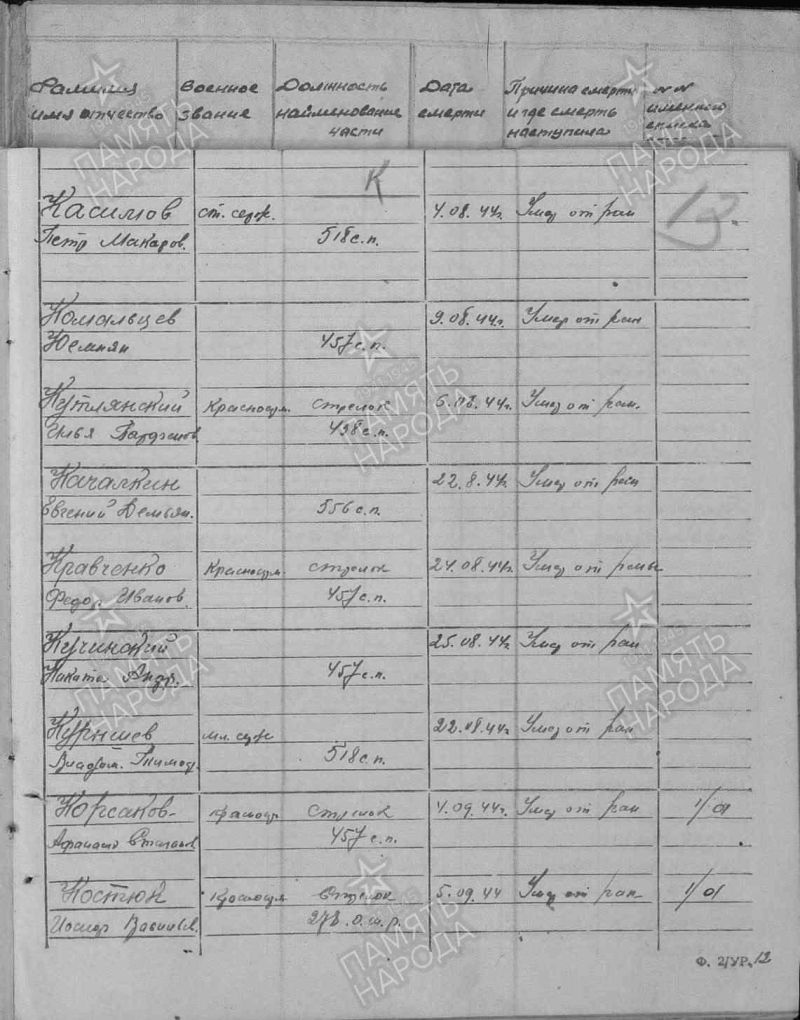 Фамилия имя отчество
Военное звание
Должность наименование части
Дата смерти
Причина смерти и где смерть наступила
№№ именного списка
К
13.
Касимов ст. серж. 4.08.44г. Умер от ран
Петр Макаров. 518 с.п.
9.08.44г. Умер от ран
457 с.п.
Кутлянский Красноарм. стрелок 6.08.44г. Умер от ран.
Илья 498 с.п.
Качалкин 22.8.44г. Умер от ран
Евгений Демьян. 556 с.п.
Кравченко Красноарм. стрелок 24.08.44г. Умер от раны
Федор Иванов. 457 с.п.
Кучинский 25.08.44г. Умер от ран
Никита Андр. 457 с.п.
Курышев мл. серж 22.08.44г. Умер от ран
Владим. Тимоф. 518 с.п.
Корсаков- красноар. стрелок 4.09.44г. Умер от ран 1/а
Афанасий Степанов 457 с.п.
Костюк Красноарм Стрелок 5.09.44 Умер от ран 1/а
Иосиф Васильев. 278 о.ш.р.
Ф. 2/УР. 12
ПАМЯТЬ НАРОДА